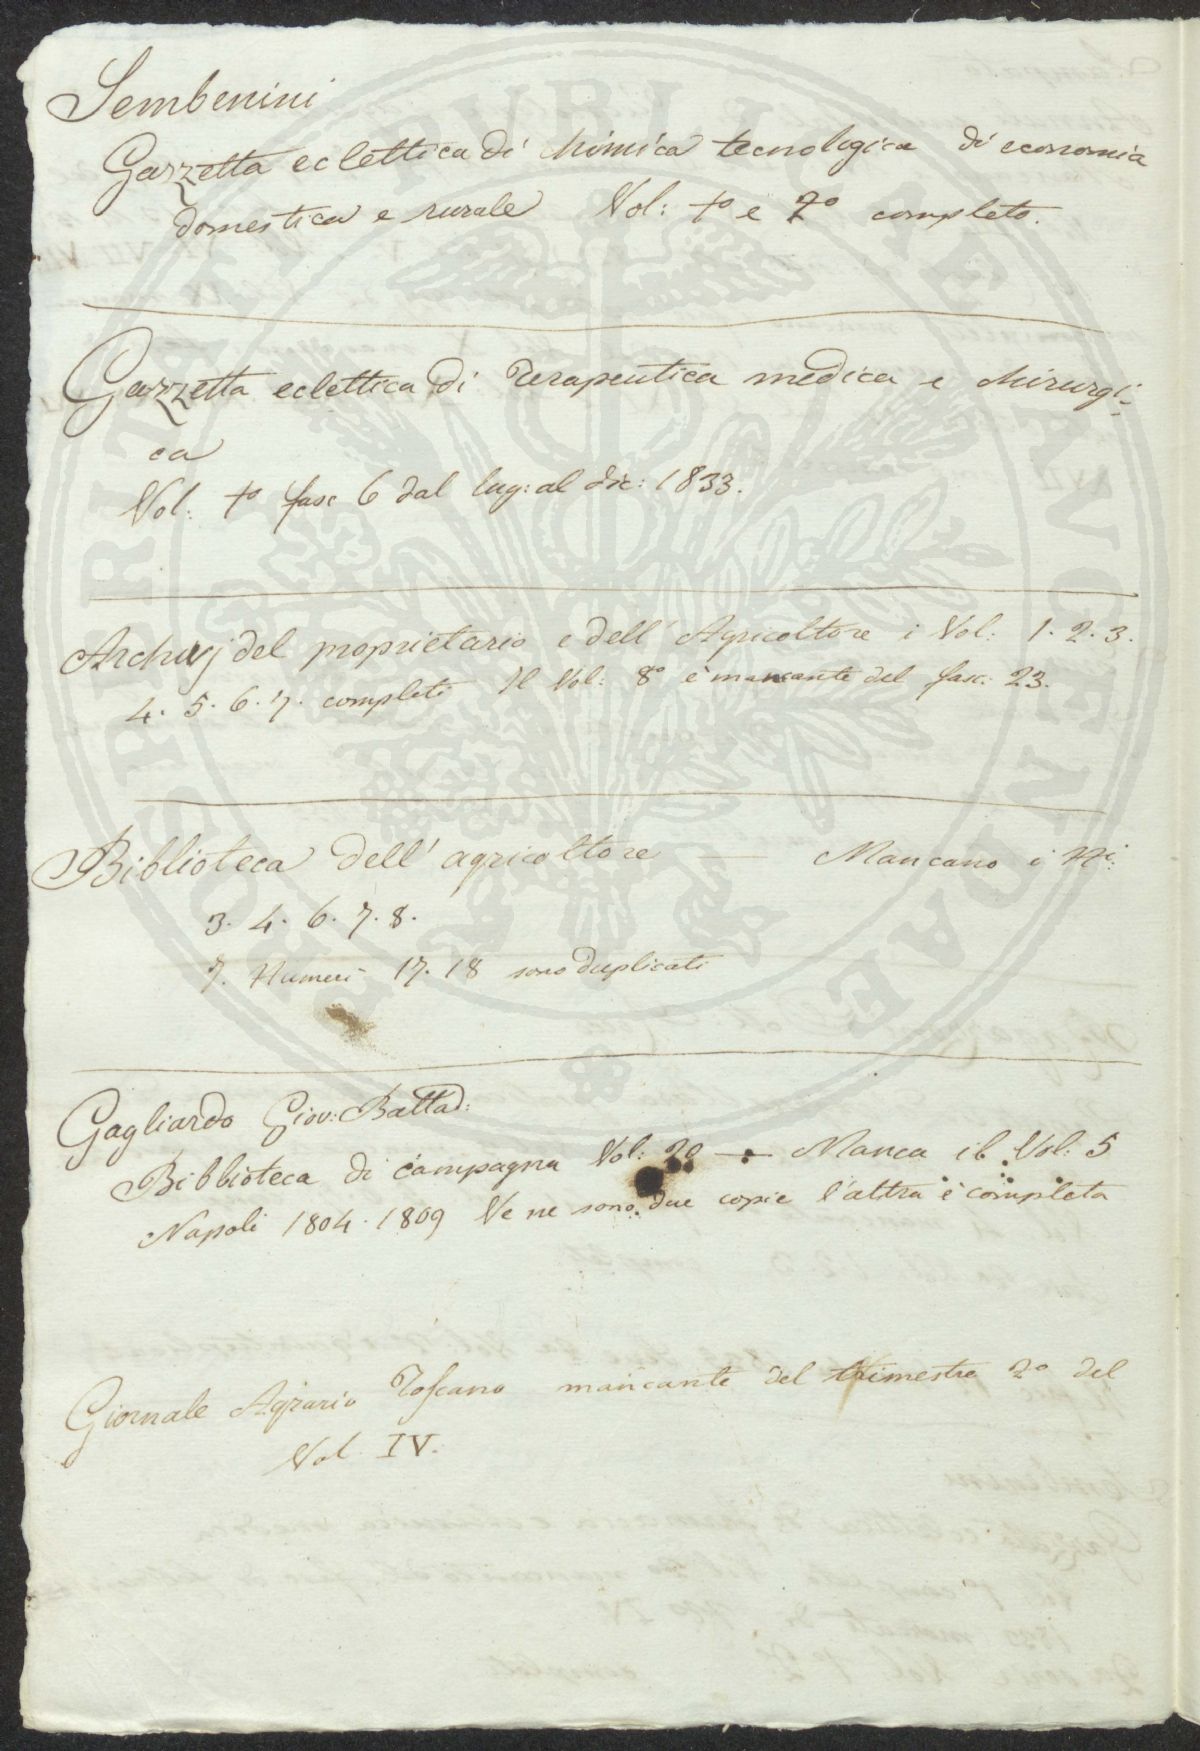 Sembenini
Gazzetta eclettica di chimica tecnologica di economia
domestica e rurale Vol: 1º e 2º completo.
Gazzetta eclettica di Terapeutica medica e chirurgi-
ca
Vol: 1º fasc 6 dal lug: al dic: 1833.
Archivj del proprietario e dell' Agricoltore i Vol: 1. 2. 3.
4. 5. 6. 7. completi Il Vol: 8º è mancante del fasc: 23.
Biblioteca dell' agricoltore — Mancano i Ni:
3. 4. 6. 7. 8.
7. Numeri 17. 18 sono duplicati
Gagliardo Giov: Battad:
Biblioteca di campagna Vol: 20 — Manca il Vol: 5
Napoli 1804. 1809 Ve ne sono due copie l'altra è completa
Giornale Agrario Toscano mancante del trimestre 2º del
Vol IV.
PROSPERITATI PUBLICAE AUGENDAE